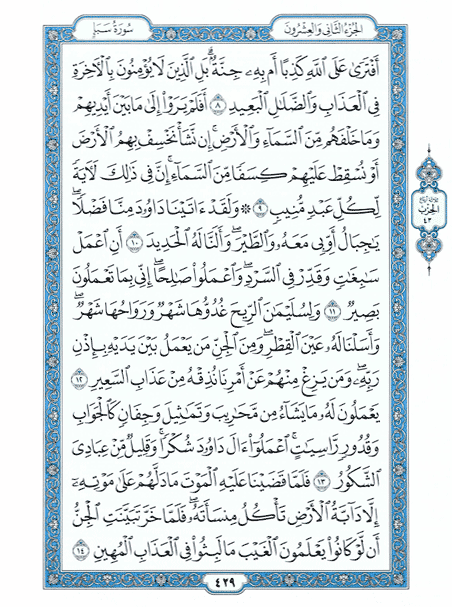 الجُزْءُ الثَّانِي وَالعِشْرُونَ
سُورَةُ سَبَإٍ
أَفْتَرَىٰ عَلَى ٱللَّهِ كَذِبًا أَم بِهِۦ جِنَّةُۢ ۗ بَلِ ٱلَّذِينَ لَا يُؤْمِنُونَ بِٱلْأَخِرَةِ
فِى ٱلْعَذَابِ وَٱلضَّلَٰلِ ٱلْبَعِيدِ ٨ أَفَلَمْ يَرَوْا۟ إِلَىٰ مَا بَيْنَ أَيْدِيهِمْ
وَمَا خَلْفَهُم مِّنَ ٱلسَّمَآءِ وَٱلْأَرْضِ ۚ إِن نَّشَأْ نَخْسِفْ بِهِمُ ٱلْأَرْضَ
أَوْ نُسْقِطْ عَلَيْهِمْ كِسَفًا مِّنَ ٱلسَّمَآءِ ۚ إِنَّ فِى ذَٰلِكَ لَءَايَةً
لِّكُلِّ عَبْدٍ مُّنِيبٍ ٩ ۞ وَلَقَدْ ءَاتَيْنَا دَاوُۥدَ مِنَّا فَضْلًا ۖ
يَٰجِبَالُ أَوِّبِى مَعَهُۥ وَٱلطَّيْرَ ۖ وَأَلَنَّا لَهُ ٱلْحَدِيدَ ١٠ أَنِ ٱعْمَلْ
سَٰبِغَٰتٍ وَقَدِّرْ فِى ٱلسَّرْدِ ۖ وَٱعْمَلُوا۟ صَٰلِحًا ۖ إِنِّى بِمَا تَعْمَلُونَ
بَصِيرٌ ١١ وَلِسُلَيْمَٰنَ ٱلرِّيحَ غُدُوُّهَا شَهْرٌ وَرَوَاحُهَا شَهْرٌ ۖ
وَأَسَلْنَا لَهُۥ عَيْنَ ٱلْقِطْرِ ۖ وَمِنَ ٱلْجِنِّ مَن يَعْمَلُ بَيْنَ يَدَيْهِ بِإِذْنِ
رَبِّهِۦ ۖ وَمَن يَزِغْ مِنْهُمْ عَنْ أَمْرِنَا نُذِقْهُ مِنْ عَذَابِ ٱلسَّعِيرِ ١٢
يَعْمَلُونَ لَهُۥ مَا يَشَآءُ مِن مَّحَٰرِيبَ وَتَمَٰثِيلَ وَجِفَانٍ كَٱلْجَوَابِ
وَقُدُورٍ رَّاسِيَٰتٍ ۚ ٱعْمَلُوٓا۟ ءَالَ دَاوُۥدَ شُكْرًا ۚ وَقَلِيلٌ مِّنْ عِبَادِىَ
ٱلشَّكُورُ ١٣ فَلَمَّا قَضَيْنَا عَلَيْهِ ٱلْمَوْتَ مَا دَلَّهُمْ عَلَىٰ مَوْتِهِۦٓ
إِلَّا دَآبَّةُ ٱلْأَرْضِ تَأْكُلُ مِنسَأَتَهُۥ ۖ فَلَمَّا خَرَّ تَبَيَّنَتِ ٱلْجِنُّ
أَن لَّوْ كَانُوا۟ يَعْلَمُونَ ٱلْغَيْبَ مَا لَبِثُوا۟ فِى ٱلْعَذَابِ ٱلْمُهِينِ ١٤
الحِزْبُ
٤٣
٤٢٩